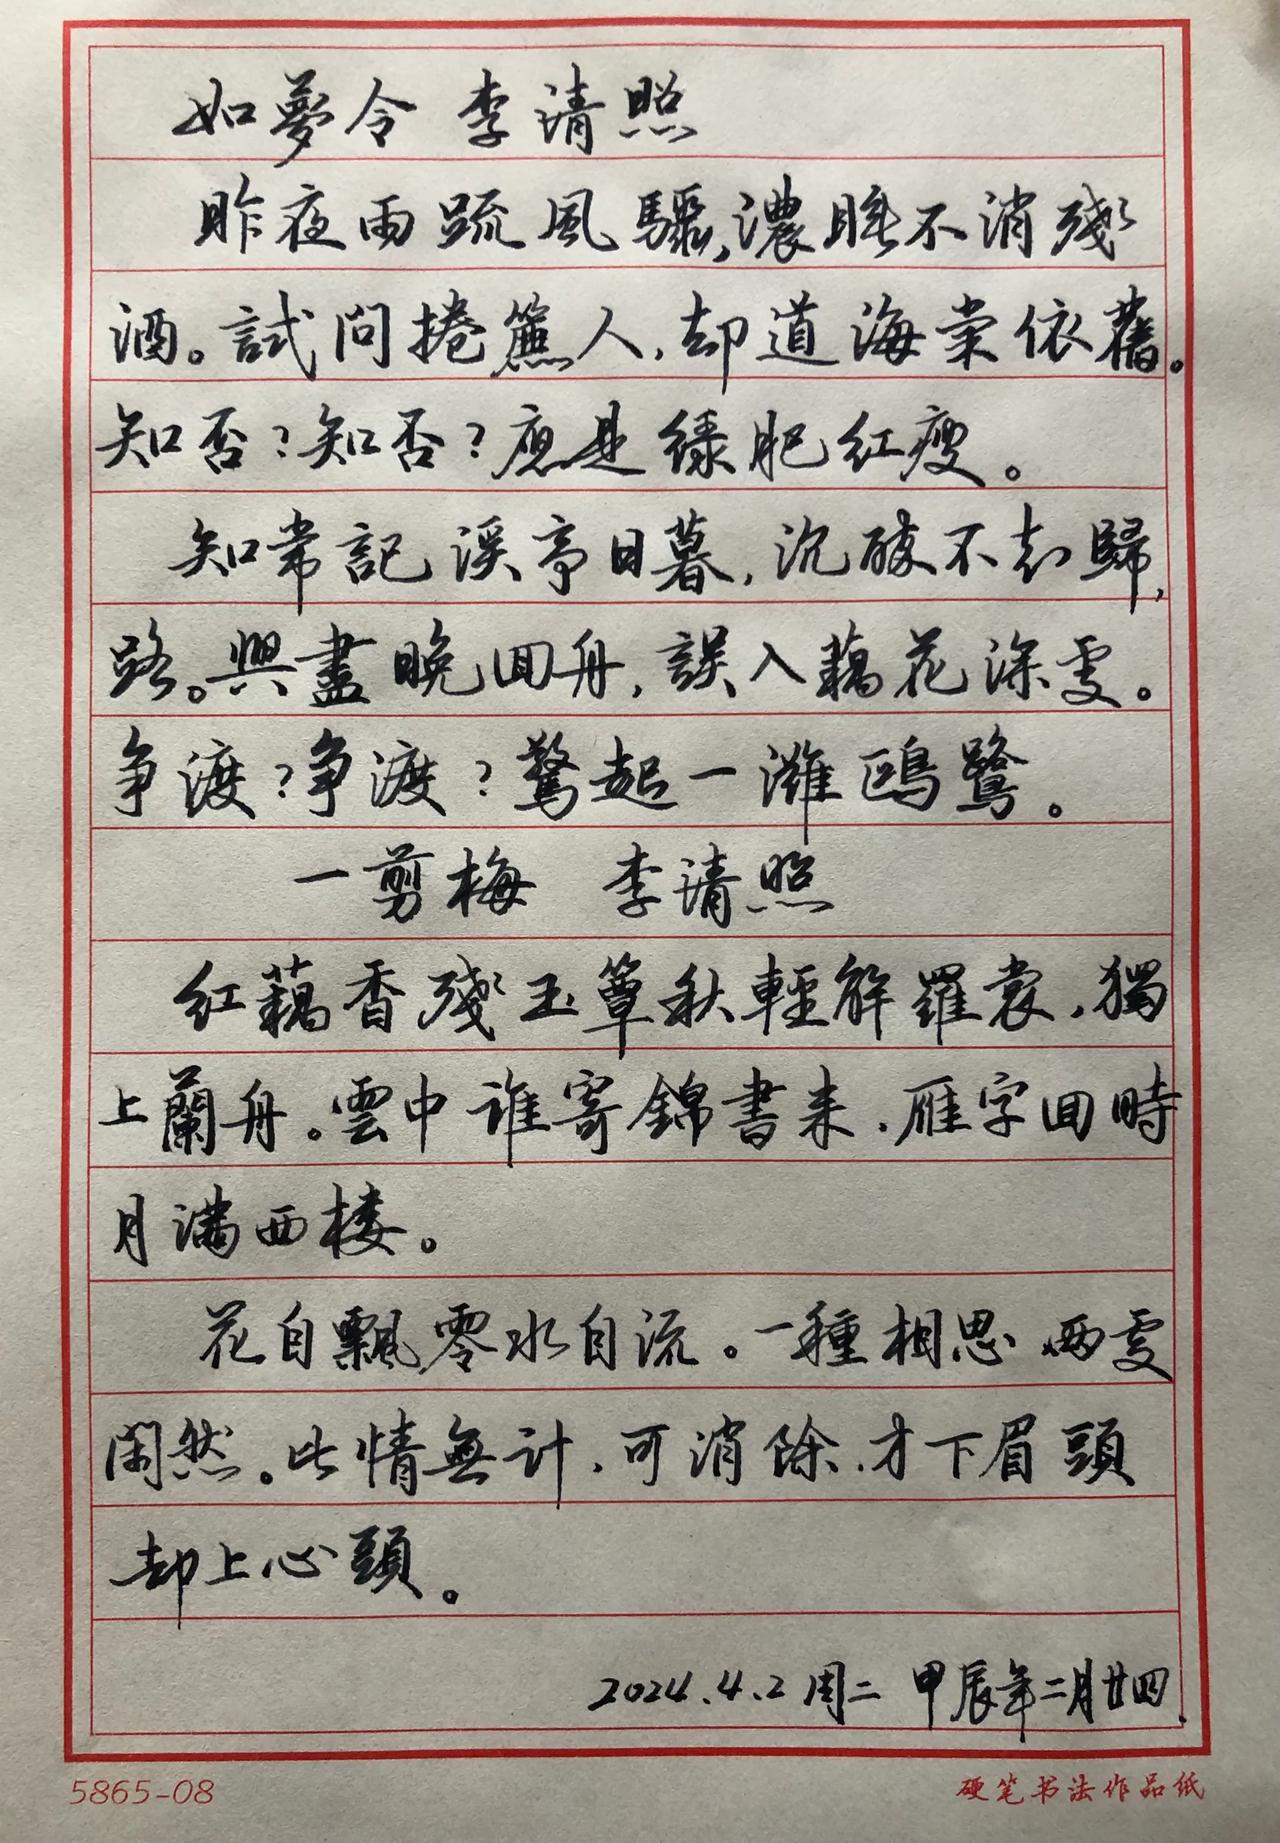 如夢令 李清照
昨夜雨疏風驟,濃睡不消殘
酒。試問捲簾人,却道海棠依舊。
知否?知否?應是綠肥紅瘦。
知常記溪亭日暮,沉醉不知歸,
路。興盡晚回舟,誤入藕花深處。
争渡?争渡?驚起一灘鷗鷺。
一剪梅 李清照
红藕香殘玉簟秋輕解羅裳,獨
上蘭舟。雲中誰寄錦書来,雁字回時
月满西楼。
花自飄零水自流。一種相思 两處
閑然。此情無計,可消除,才下眉頭
却上心頭。
2024.4.2周二 甲辰年二月廿四.
5865-08 硬笔书法作品纸